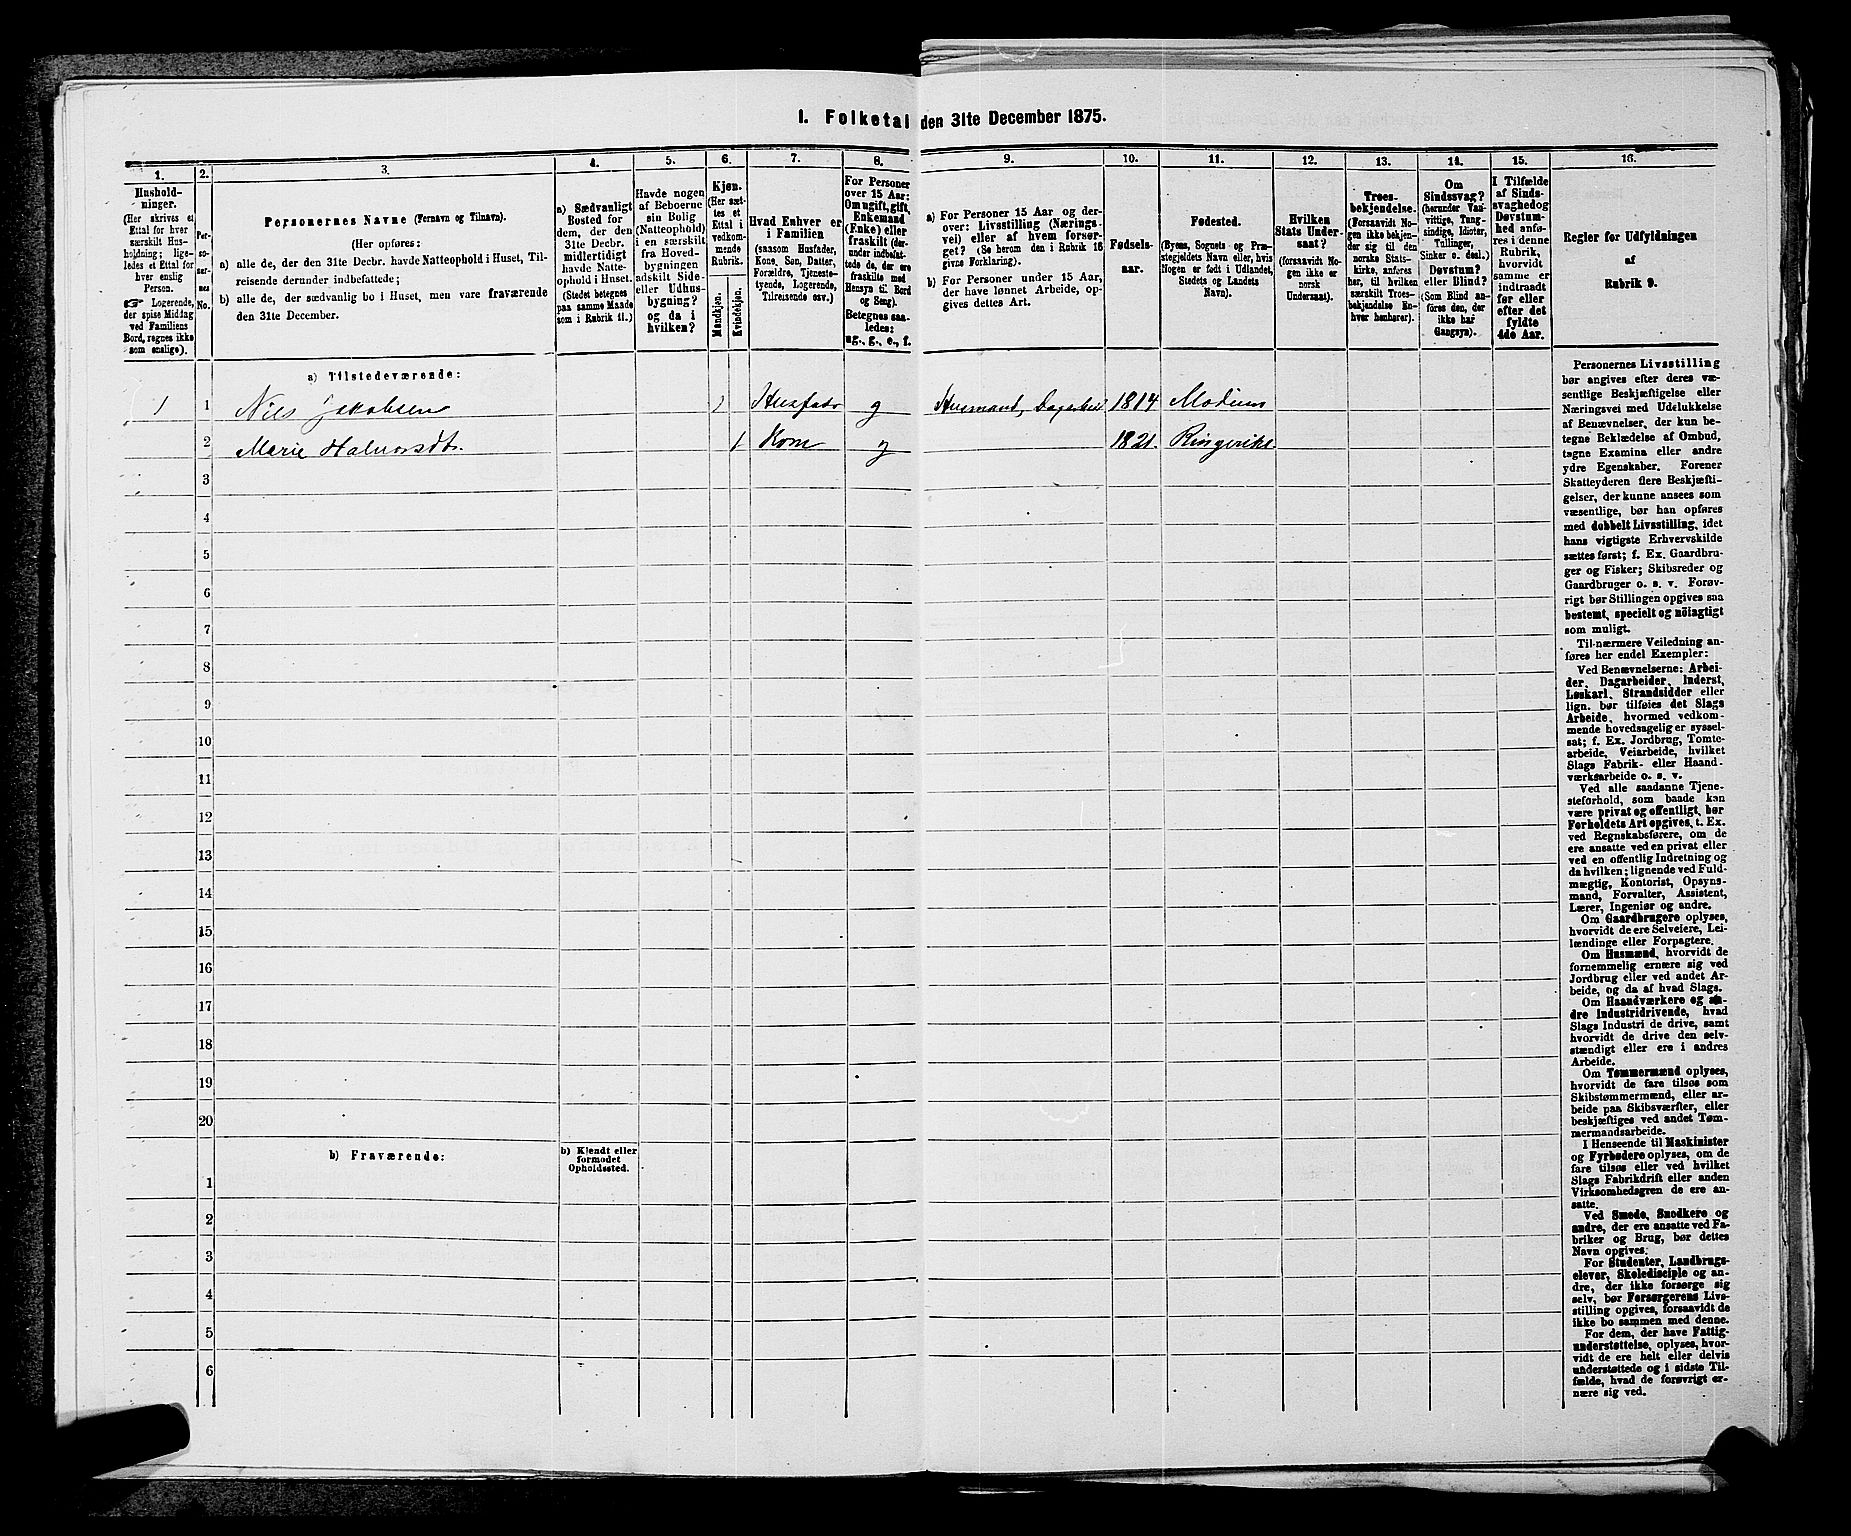 I. Folketal den 31te December 1875.
1. 2. 3. 4. 5. 6. 7. 8. 9. 10. 11. 12. 13. 14. 15. 16.
Hushold-
ninger.
(Her skrives et
Ettal for hver
særskilt Hus-
holdning; lige-
ledes et Ettal for
hver enslig
Person.
☞ Logerende,
der spise Middag
ved Familiens
Bord, regnes ikke
som enslige).
Per-
so-
ner-
nes
No.
Personernes Navne (Fornavn og Tilnavn).
(Her opføres:
a) alle de, der den 31te Decbr. havde Natteophold i Huset, Til-
reisende derunder indbefattede;
b) alle de, der sædvanlig bo i Huset, men vare fraværende
den 31te December.
a) Sædvanligt
Bosted for
dem, der den
31te Decbr.
midlertidigt
havde Natte-
ophold i Huset.
(Stedet betegnes
paa samme Maade
som i Rubrik 11.)
Havde nogen
af Beboerne
sin Bolig
(Natteophold)
i en særskilt
fra Hoved-
bygningen
adskilt Side-
eller Udhus-
bygning?
og da i
hvilken?
Kjøn.
(Her sæt-
tes et
Ettal i
vedkom-
mende
Rubrik.
Mandkjøn.
Kvindekjøn.
Hvad Enhver er
i Familien
(saasom Husfader,
Kone, Søn, Datter,
Forældre, Tjeneste-
tyende, Logerende,
Tilreisende osv.)
For Personer
over 15 Aar:
Om ugift, gift,
Enkemand
(Enke) eller
fraskilt (der-
under indbefat-
tede de, der ere
fraskilte med
Hensyn til Bord
og Seng).
Betegnes saa-
ledes:
ug., g., e., f.
a) For Personer 15 Aar og der-
over: Livsstilling (Nærings-
vei) eller af hvem forsør-
get? (Se herom den i Rubrik 16
givne Forklaring).
b) For Personer under 15 Aar,
der have lønnet Arbeide, op-
gives dettes Art.
Fødsels-
aar.
Fødested.
(Byens, Sognets og Præ-
stegjeldets Navn eller, hvis
Nogen er født i Udlandet,
Stedets og Landets
Navn).
Hvilken
Stats Under-
saat?
(forsaavidt No-
gen ikke er
norsk
Undersaat).
Troes-
bekjendelse.
(Forsaavidt No-
gen ikke bekjen-
der sig til den
norske Stats-
kirke, anføres
her, til hvilken
særskilt Troes-
bekjendelse En-
hver henhører).
Om
Sindssvag?
(herunder Van-
vittige, Tung-
sindige, Idioter,
Tullinger,
Sinker o. desl.)
Døvstum?
eller Blind?
(Som Blind an-
føres den, der
ikke har
Gangsyn).
I Tilfælde
af Sinds-
svaghed og
Døvstum-
hed anfø-
res i denne
Rubrik,
hvorvidt
samme er
indtraadt
før eller
efter det
fyldte
4de Aar.
Regler for Udfyldningen
af
Rubrik 9.
a) Tilstedeværende:
1 1 Nils Jakobsen 1 Husfader g Husmand, Dagarbeid 1814 Modum
2 Marie Halvorsdtr. 1 Kone g 1821. Ringerike
3
4
5
6
7
8
9
10
11
12
13
14
15
16
17
18
19
20
b) Fraværende:
b) Kjendt eller
formodet
Opholdssted.
1
2
3
4
5
6
Personernes Livsstilling
bør angives efter deres væ-
sentlige Beskjæftigelse eller
Næringsvei med Udelukkelse
af Benævnelser, der kun be-
tegne Beklædelse af Ombud,
tagne Examina eller andre
ydre Egenskaber. Forener
Skatteyderen flere Beskjæfti-
gelser, der kunne ansees som
væsentlige, bør han opføres
med dobbelt Livsstilling, idet
hans vigtigste Erhvervskilde
sættes først; f. Ex. Gaardbru-
ger og Fisker; Skibsreder og
Gaardbruger o. s. v. Forøv-
rigt bør Stillingen opgives saa
bestemt, specielt og nöiagtigt
som muligt.
Til nærmere Veiledning an-
føres her endel Exempler:
Ved Benævnelserne: Arbei-
der, Dagarbeider, Inderst,
Løskarl, Strandsidder eller
lign. bør tilføies det Slags
Arbeide, hvormed vedkom-
mende hovedsagelig er syssel-
sat; f. Ex. Jordbrug, Tomte-
arbeide, Veiarbeide, hvilket
Slags Fabrik- eller Haand-
værksarbeide o. s. v.
Ved alle saadanne Tjene-
steforhold, som baade kan
være privat og offentligt, bør
Forholdets Art opgives, t. Ex.
ved Regnskabsførere, om de
ere ansatte ved en privat eller
ved en offentlig Indretning og
da hvilken; lignende ved Fuld-
mægtig, Kontorist, Opsyns-
mand, Forvalter, Assistent,
Lærer, Ingeniør og andre.
Om Gaardbrugere oplyses,
hvorvidt de ere Selveiere, Lei-
lændinge eller Forpagtere.
Om Husmænd, hvorvidt de
fornemmelig ernære sig ved
Jordbrug eller ved andet Ar-
beide, og da af hvad Slags.
Om Haandværkere og an-
dre Industridrivende, hvad
Slags Industri de drive, samt
hvorvidt de drive den selv-
stændigt eller ere i andres
Arbeide.
Om Tømmermænd oplyses,
hvorvidt de fare tilsøs som
Skibstømmermænd, eller ar-
beide paa Skibsværfter, eller
beskjæftiges ved andet Tøm-
mermandsarbeide.
I Henseende til Maskinister
og Fyrbødere oplyses, om de
fare tilsøs eller ved hvilket
Slags Fabrikdrift eller anden
Virksomhedsgren de ere an-
satte.
Ved Smede, Snedkere og
andre, der ere ansatte ved Fa-
briker og Brug, bør dettes
Navn opgives.
For Studenter, Landbrugs-
elever, Skoledisciple og an-
dre, der ikke forsørge sig
selv, bør Forsørgerens Livs-
stilling opgives, forsaavidt de
ikke bo sammen med denne.
For dem, der have Fattig-
understøttelse, oplyses, hvor-
vidt de ere helt eller delvis
understøttede og i sidste Til-
fælde, hvad de forøvrigt er-
nære sig ved.